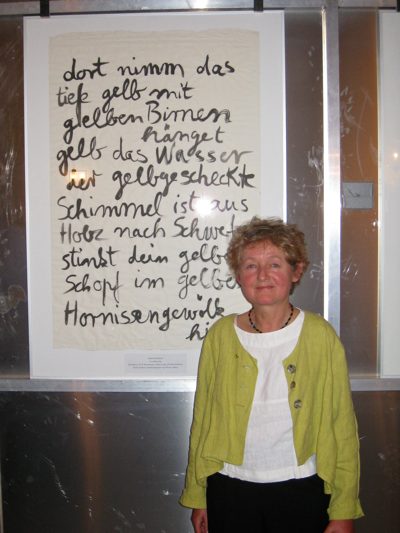 dort nimm das
tiefe gelb mit
gelben Birnen
hänget
gelb das Wasser
der gelbgescheckte
Schimmel ist aus
Holz nach Schwef
stinkt dein gelbe
Schopf im gelbe
Hornissengewölk
hi